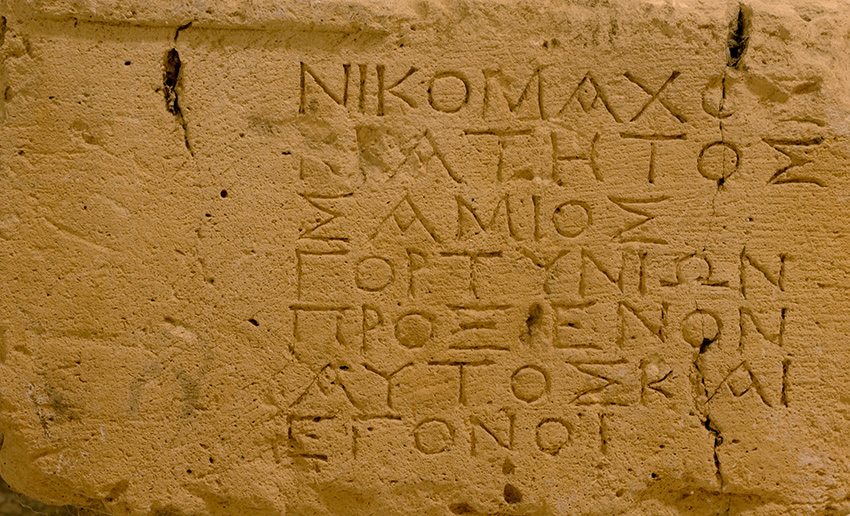 ΝΙΚΟΜΑΧΟΣ
ΚΡΑΤΗΤΟΣ
ΣΑΜΙΟΣ
ΓΟΡΤΥΝΙΩΝ
ΠΡΟΞΕΝΟΝ
ΑΥΤΟΣΚΑΙ
ΕΓΟΝΟΙ